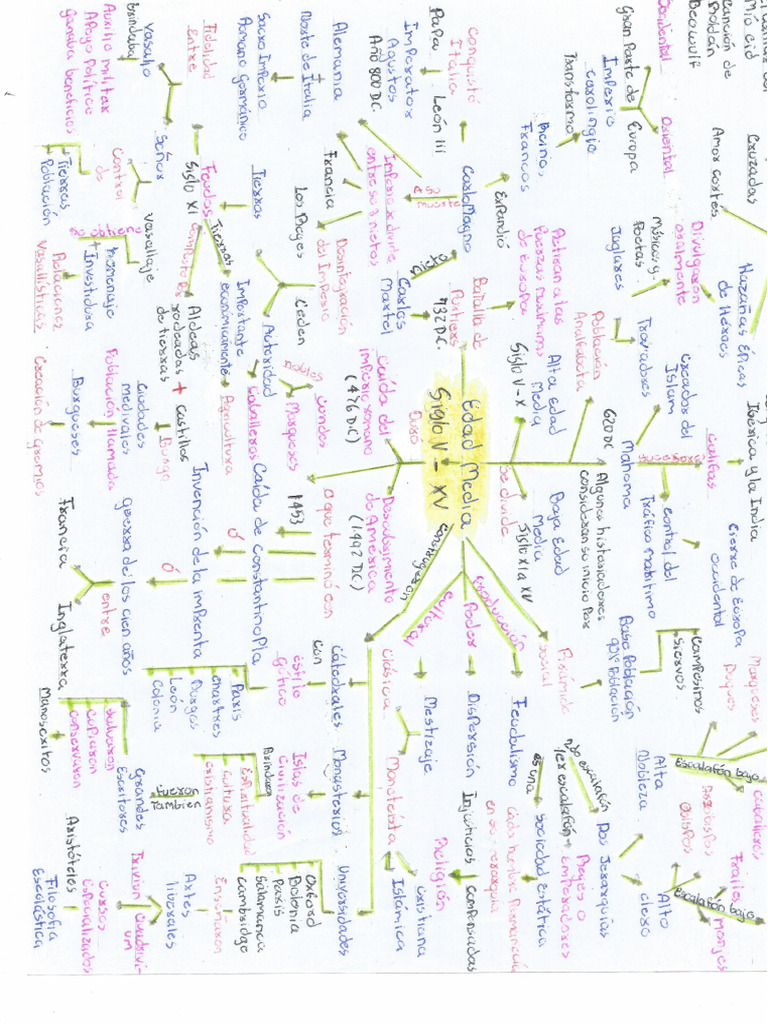 Mio cid
Canción de
Roldán
Beowulf
Cruzadas
Amor cortes
Hazañas Épicas
de Héroes
Divulgaron
oralmente
Músicos y
Poetas
Juglares
Trovadores
Población
Analfabeta
Ibérica y la India
califas
creador del
Islam
Mahoma
620 DC
Cierre de Europa
occidental
control del
Tráfico marítimo
Algunos historiadores
consideran su inicio Por
Marqueses
Duques
Campesinos
Siervos
Base Población
90% Población
Pirámide
social
caballeros
Escalafón bajo
Alta
Nobleza
Arzobispos
Obispos
Frailes
Monjes
Escalafón bajo
Alto
clero
Dos Jerarquías
2do escalafón
1er escalafón
Reyes o
Emperadores
Occidental
Oriental
Gran Parte de
Europa
Imperio
carolingio
Transformo
Reino
Francos
Expandió
CarloMagno
conquistó
Italia
Papa
León III
Imperator
Agustos
Año 800 D.C
Retienen a las
fuerzas musulmanas
de Europa
Batalla de
Poitiers
732 D.C.
Nieto
Carlos
Martel
Muerte
Imperio se divide
entre sus 3 nietos
Alemania
Francia
Norte de Italia
Sacro Imperio
Romano germánico
Desintegración
del Imperio
Los Reyes
Ceden
Tierras
Autoridad
Edad Media
Siglo V - XV
Alta Edad
Media
Siglo V-X
Se divide
Baja Edad
Media
Siglo XI a XV
Duro
Caída del
imperio romano
(476 D.C)
Descubrimiento
de América
(1492 D.C)
O que terminó con
1453
ó
Caída de Constantinopla
Invención de la imprenta
ó
guerra de los cien años
entre
Francia
Inglaterra
nobles
condes
Marqueses
Caballeros
Fidelidad
Entre
Señor
Vasallo
Brindaba
Auxilio militar
Apoyo Político
ganaba beneficios
Feudos
Siglo XI
Tierras
Importante
economicamente
Agricultura
Compuesto por
Aldeas
rodeadas
de tierras
+
castillos
Burgo
Vasallaje
control
de
Tierras
Población
homenaje
+
Investidura
Relaciones
vasalláticas
ciudades
medivales
Población llamados
Burgueses
Creación de gremios
Producción
Feudalismo
es una
Sociedad estática
cada hombre Permanecía
en su jerarquía
Poder
Dispersión
Injusticias
compensadas
Religión
cultural
Mestizaje
clásica
Monoteísta
cristiana
Islámica
emergieron
Catedrales
con
estilo
gótico
París
chartres
Burgos
León
Colonia
Monasterios
Islas de
civilización
Brindaron
Espiritualidad
cultura
cristianismo
Fueron
También
Grandes
Escritores
salvaron
copiaron
conservaron
Manoscritos
Universidades
Oxford
Bolonia
París
Salamanca
cambridge
Enseñaron
Artes
liberales
Trivium
cuadrivium
cursos
especializados
Aristóteles
Filosofía
Escolástica